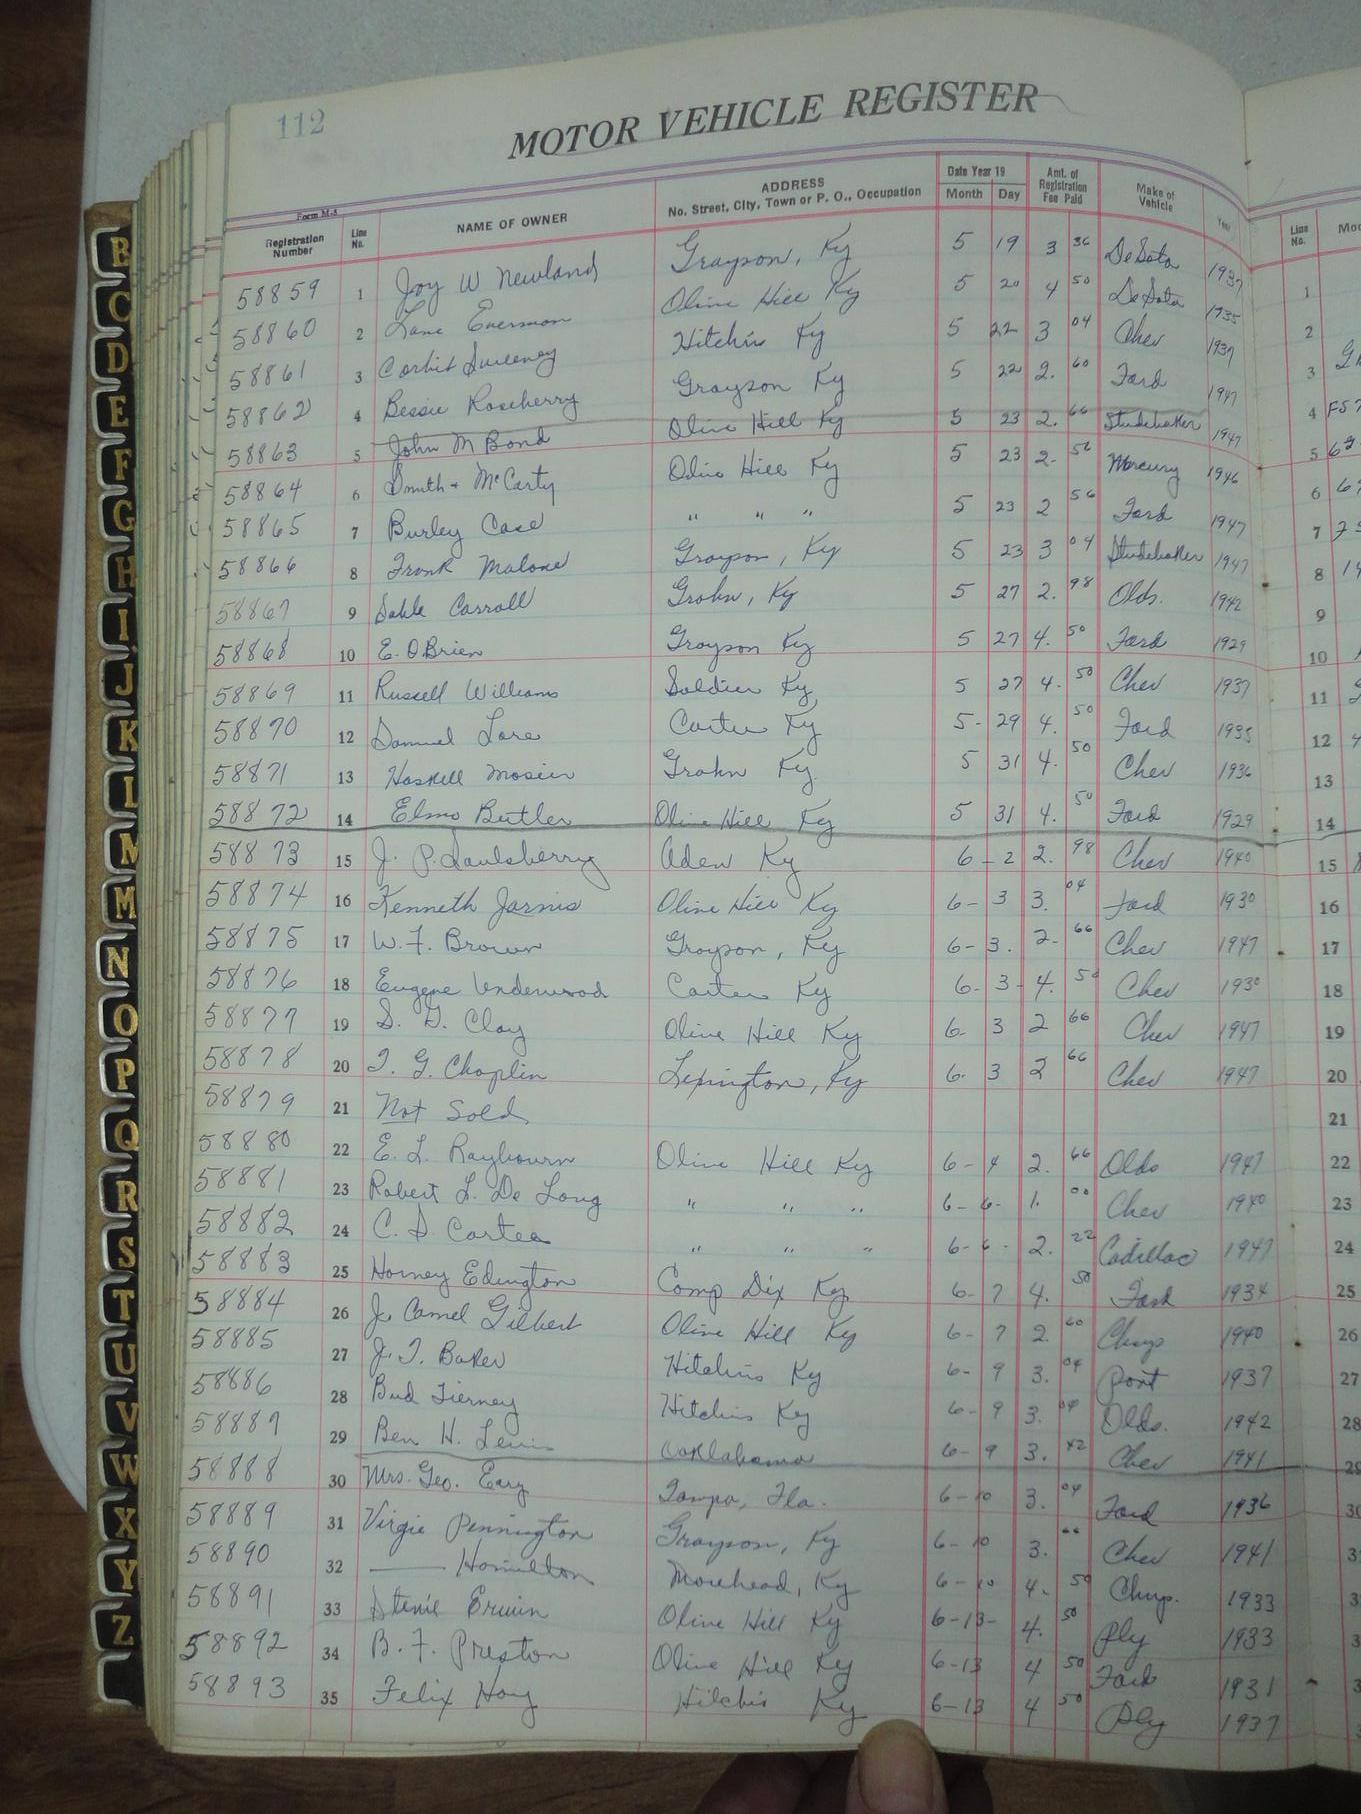 112
MOTOR VEHICLE REGISTER
Form M-5
Registration Number Line No. NAME OF OWNER ADDRESS No. Street, City, Town or P. O., Occupation Date Year 19 Month Day Amt. of Registration Fee Paid Make of Vehicle Year Line No.
58859 1 Joy W Newland Grayson, Ky 5 19 3 36 DeSoto 1937 1
58860 2 Lane Everman Olive Hill Ky 5 20 4 50 DeSoto 1935 2
58861 3 Corbit Sweeney Hitchins Ky 5 22 3 04 Chev 1937 3
58862 4 Bessie Roseberry Grayson Ky 5 22 2. 60 Ford 1947 4
58863 5 John M Bond Olive Hill Ky 5 23 2. 66 Studebaker 1947 5
58864 6 Smith + McCarty Olive Hill Ky 5 23 2- 56 Mercury 1946 6
58865 7 Burley Case " " " 5 23 2 56 Ford 1947 7
58866 8 Frank Malone Grayson, Ky 5 23 3 04 Studebaker 1947 8
58867 9 Sable Carroll Grahn, Ky 5 27 2. 98 Olds. 1942 9
58868 10 E. OBrien Grayson Ky 5 27 4. 50 Ford 1929 10
58869 11 Russell Williams Soldier Ky 5 27 4. 50 Chev 1937 11
58870 12 Samuel Lore Carter Ky 5- 29 4. 50 Ford 1935 12
58871 13 Haskell Mosier Grahn Ky 5 31 4. 50 Chev 1936 13
58872 14 Elmo Butler Olive Hill Ky 5 31 4. 50 Ford 1929 14
58873 15 J. P. Saulsberry Aden Ky 6-2 2. 98 Chev 1940 15
58874 16 Kenneth Jarvis Olive Hill Ky 6- 3 3. 04 Ford 1930 16
58875 17 W. F. Brown Grayson, Ky 6- 3. 2- 66 Chev 1947 17
58876 18 Eugene Underwood Carter Ky 6- 3- 4. 50 Chev 1930 18
58877 19 S. G. Clay Olive Hill Ky 6- 3 2 66 Chev 1947 19
58878 20 T. G. Chaplin Lexington, Ky 6- 3 2 66 Chev 1947 20
58879 21 Not Sold 21
58880 22 E. L. Raybourn Olive Hill Ky 6-4 2. 66 Olds 1947 22
58881 23 Robert L. De Long " " " 6-6- 1. 00 Chev 1940 23
58882 24 C. D. Carter " " " 6-6- 2. 22 Cadillac 1947 24
58883 25 Horney Edington Camp Dix Ky 6-7 4. 50 Ford 1934 25
58884 26 J. Camel Gilbert Olive Hill Ky 6-7 2. 60 Chryp 1940 26
58885 27 J. T. Baker Hitchins Ky 6-9 3. 04 Pont 1937 27
58886 28 Bud Tierney Hitchins Ky 6-9 3. 04 Olds. 1942 28
58887 29 Ben H. Lewis Oaklahoma 6-9 3. 42 Chev 1941 29
58888 30 Mrs. Geo. Eary Tampa, Fla. 6-10 3. 04 Ford 1936
58889 31 Virgie Pennington Grayson, Ky 6-10 3. 66 Chev 1941
58890 32 —— Hamilton Morehead, Ky 6-10 4. 50 Chryp. 1933
58891 33 Erwin Olive Hill Ky 6-13- 4. 50 Ply 1933
58892 34 B. F. Preston Olive Hill Ky 6-13 4 50 Ford 1931
58893 35 Felix Hay Hitchins Ky 6-13 4 50 Ply 1937
B
C
D
E
F
G
H
I
J
K
L
M
M
N
O
P
Q
R
S
T
U
V
W
X
Y
Z